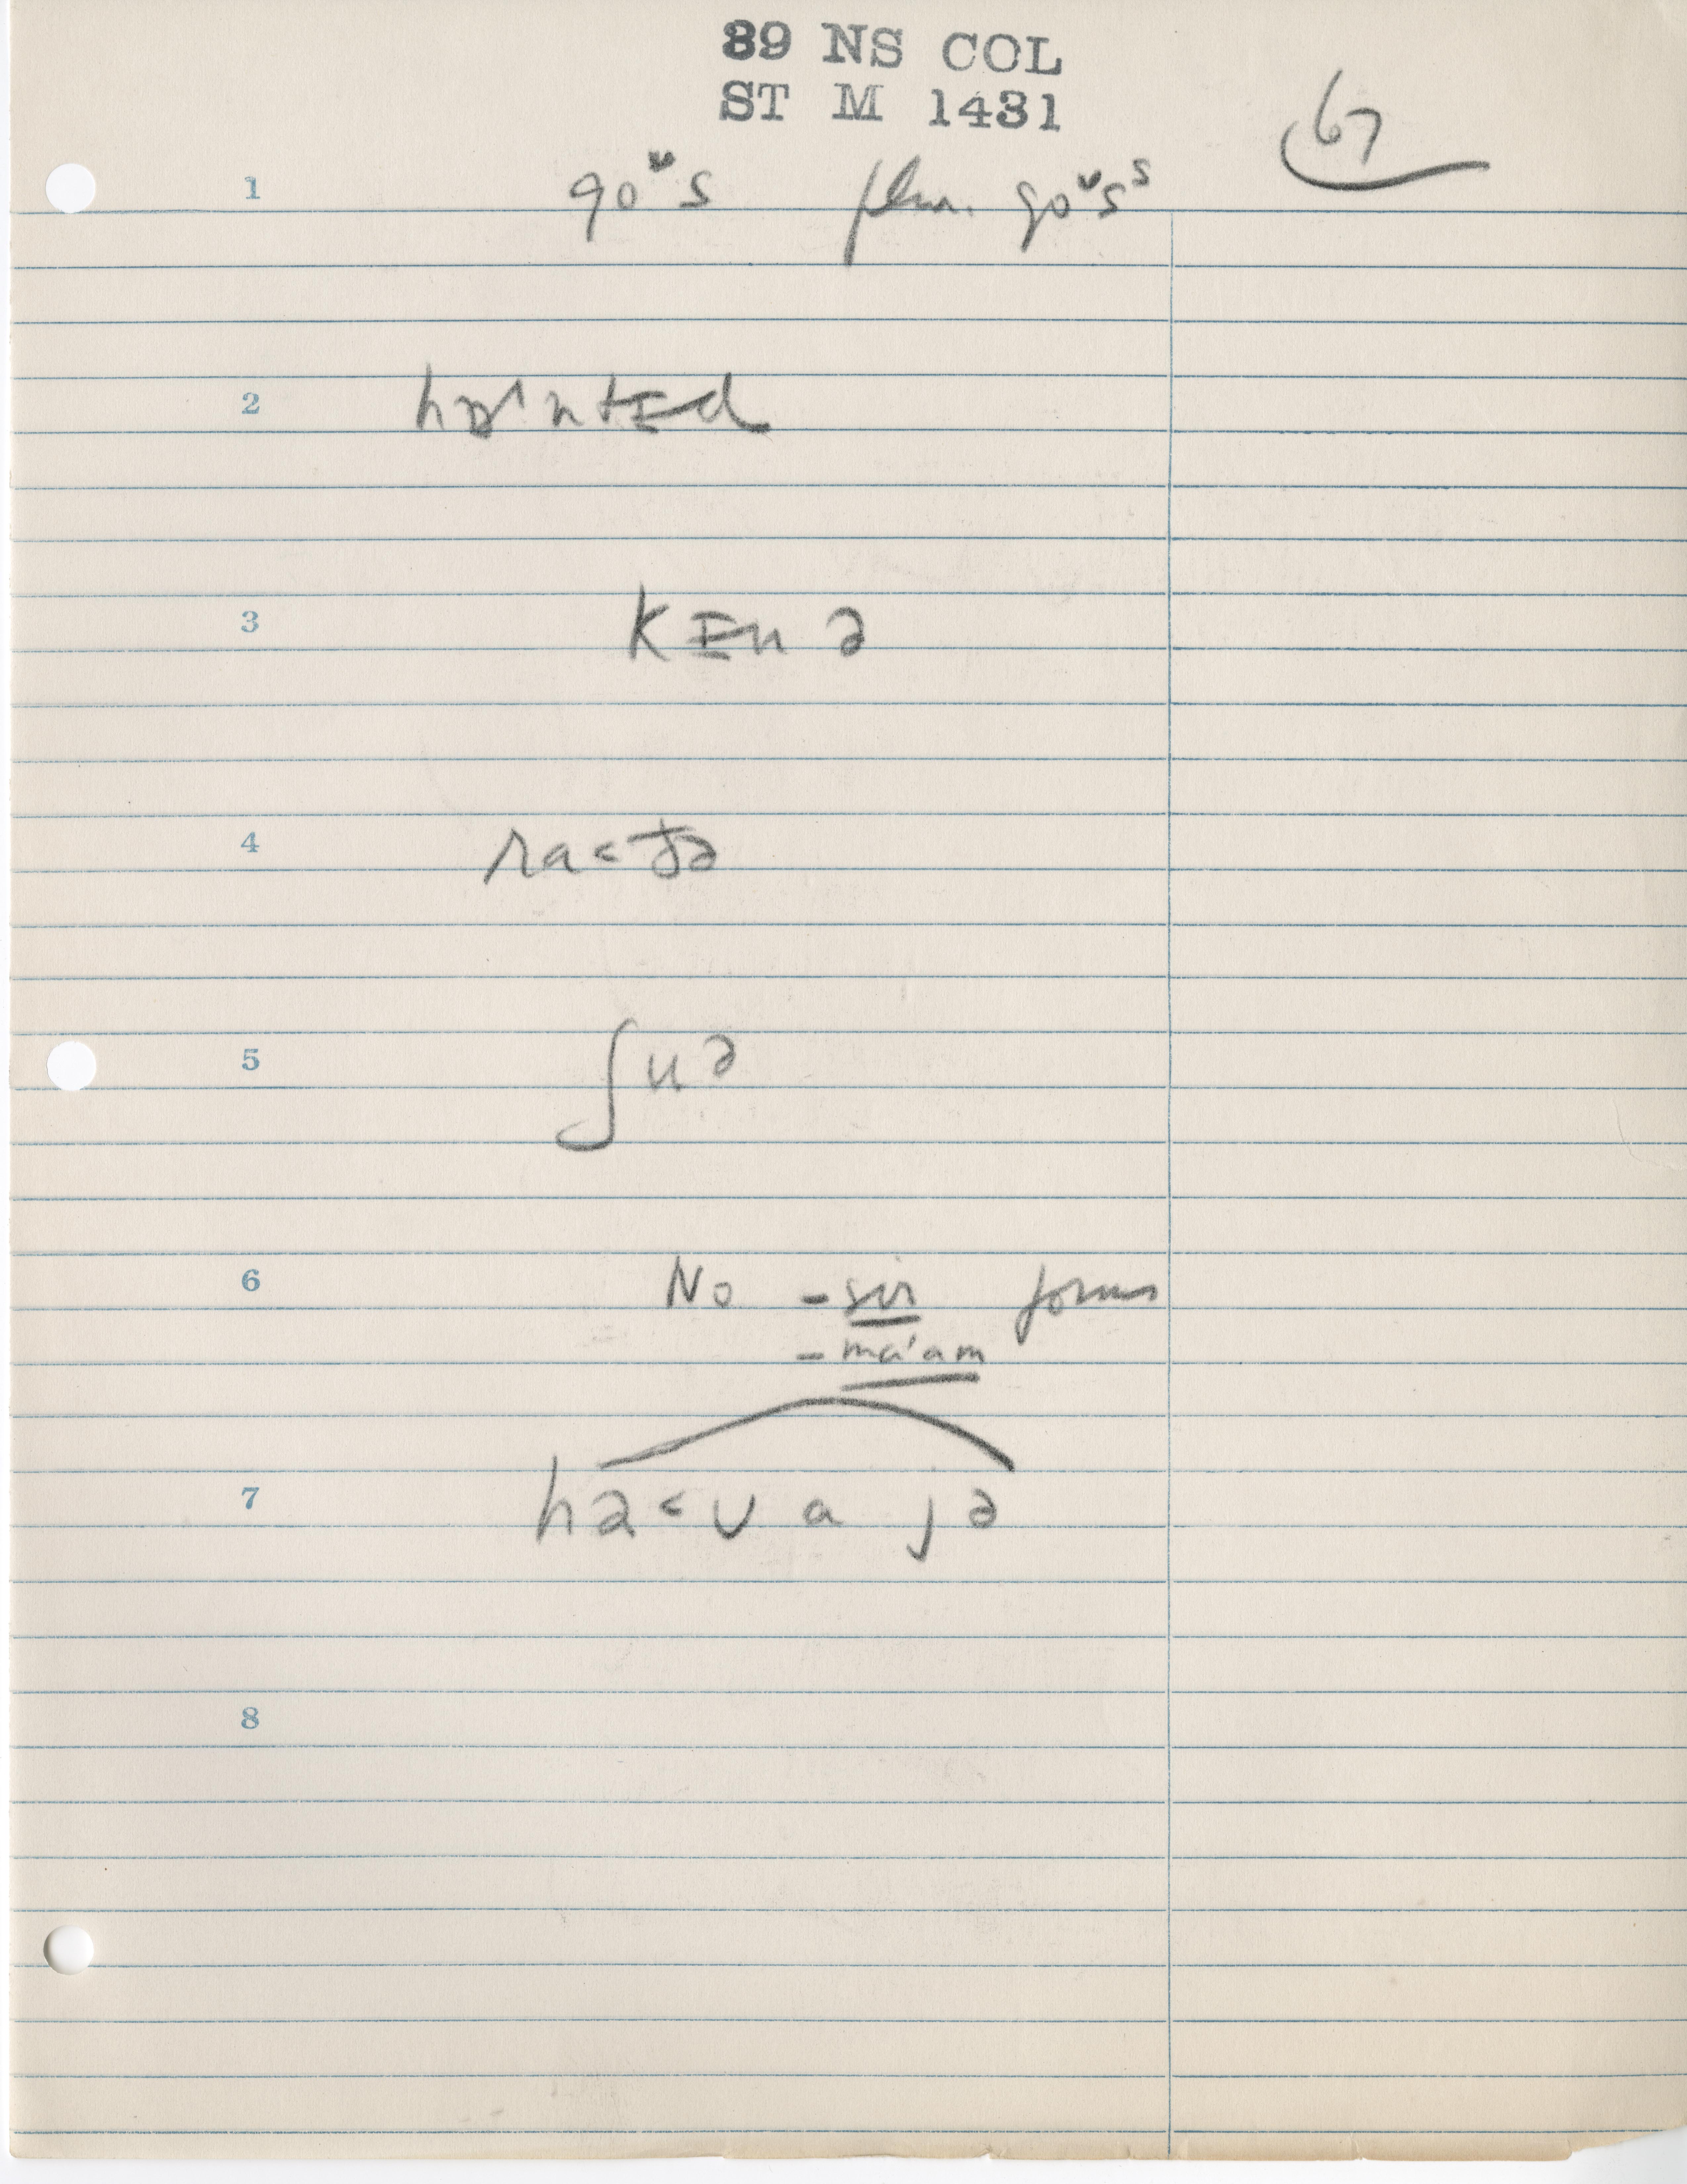 89 NS COL
ST M 1431
67
1 go ᵛ s plu. go ᵛ s ˢ
2 hɒ^ntɪd
3 kɪnə
4 ra<ðə
5 ʃuə
6 No -sir forms
-ma'am
7 ha<ʊ a jə
8